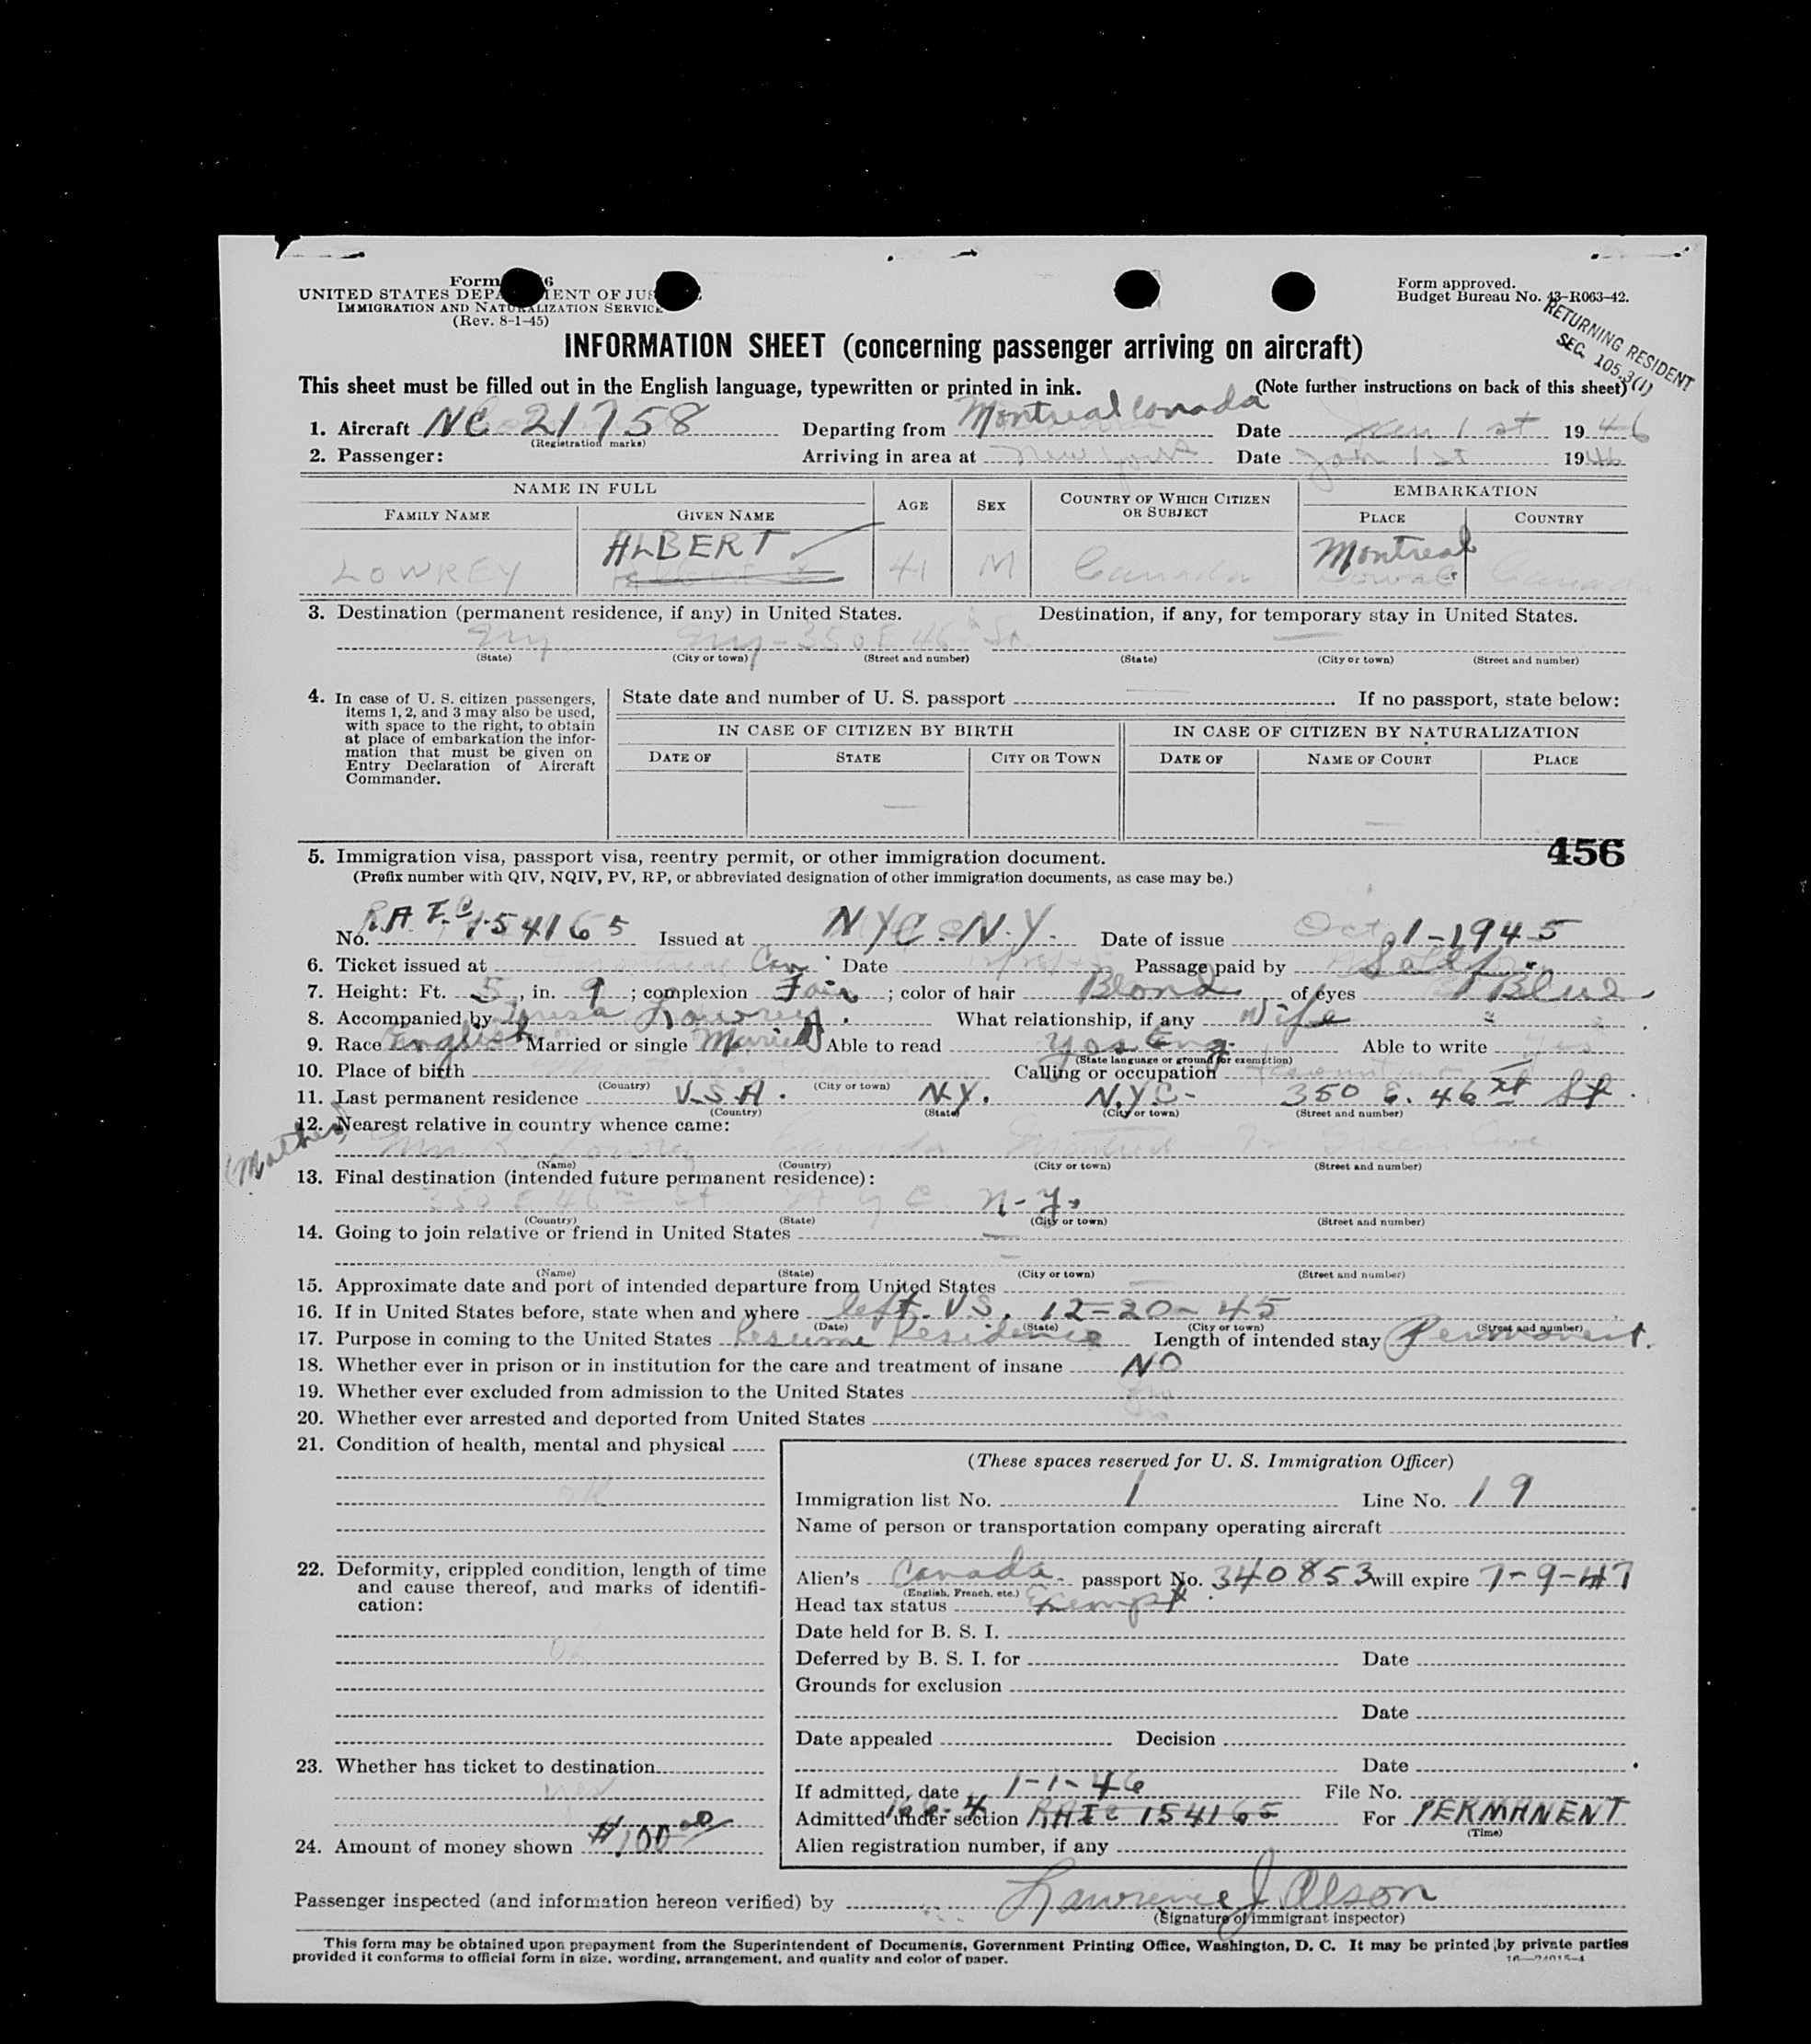 Form 6
UNITED STATES DEPA IENT OF JUS
IMMIGRATION AND NATURALIZATION SERVICE
(Rev. 8-1-45)
Form approved.
Budget Bureau No. 43-R063-42.
RETURNING RESIDENT
SEC. 105.3(1)
INFORMATION SHEET (concerning passenger arriving on aircraft)
This sheet must be filled out in the English language, typewritten or printed in ink. (Note further instructions on back of this sheet)
1. Aircraft NC 21758 Departing from Montreal Canada Date Jan 1st 1946
(Registration marks)
2. Passenger: Arriving in area at New York Date Jan 1st 1946
NAME IN FULL AGE SEX COUNTRY OF WHICH CITIZEN OR SUBJECT EMBARKATION
FAMILY NAME GIVEN NAME PLACE COUNTRY
LOWREY ALBERT 41 M Canada Montreal Canada
3. Destination (permanent residence, if any) in United States. Destination, if any, for temporary stay in United States.
NY NY - 350 E 46th St. —
(State) (City or town) (Street and number) (State) (City or town) (Street and number)
4. In case of U. S. citizen passengers, items 1, 2, and 3 may also be used, with space to the right, to obtain at place of embarkation the information that must be given on Entry Declaration of Aircraft Commander.
State date and number of U. S. passport — . If no passport, state below:
IN CASE OF CITIZEN BY BIRTH IN CASE OF CITIZEN BY NATURALIZATION
DATE OF STATE CITY OR TOWN DATE OF NAME OF COURT PLACE
— —
456
5. Immigration visa, passport visa, reentry permit, or other immigration document.
(Prefix number with QIV, NQIV, PV, RP, or abbreviated designation of other immigration documents, as case may be.)
No. 154165 Issued at NYC. N.Y. Date of issue Oct 1-1945
6. Ticket issued at Can Date Passage paid by Self
7. Height: Ft. 5, in. 9; complexion Fair; color of hair Blond, of eyes Blue
8. Accompanied by Lowrey. What relationship, if any Wife
9. Race English Married or single Married Able to read Yes Eng. Able to write Yes
(State language or ground for exemption)
10. Place of birth Calling or occupation
(Country) (City or town)
11. Last permanent residence U.S.A. N.Y. N.Y.C. 350 E. 46th St.
(Country) (State) (City or town) (Street and number)
(Mother)
12. Nearest relative in country whence came:
Mrs Lowrey Canada Montreal Ave
(Name) (Country) (City or town) (Street and number)
13. Final destination (intended future permanent residence):
350 E 46th St N Y C N-Y.
(Country) (State) (City or town) (Street and number)
14. Going to join relative or friend in United States —
—
(Name) (State) (City or town) (Street and number)
15. Approximate date and port of intended departure from United States —
16. If in United States before, state when and where left U.S. 12-20-45
(Date) (State) (City or town) (Street and number)
17. Purpose in coming to the United States Resume Residence Length of intended stay Permanent.
18. Whether ever in prison or in institution for the care and treatment of insane NO
19. Whether ever excluded from admission to the United States
20. Whether ever arrested and deported from United States
21. Condition of health, mental and physical
OK
22. Deformity, crippled condition, length of time and cause thereof, and marks of identification:
23. Whether has ticket to destination
yes
24. Amount of money shown $100.00
(These spaces reserved for U. S. Immigration Officer)
Immigration list No. 1 Line No. 19
Name of person or transportation company operating aircraft
Alien's Canada passport No. 340853 will expire 7-9-47
(English, French, etc.)
Head tax status Exempt
Date held for B. S. I.
Deferred by B. S. I. for Date
Grounds for exclusion
Date
Date appealed Decision
Date
If admitted, date 1-1-46 File No.
Admitted under section 154165 For PERMANENT
(Time)
Alien registration number, if any
Passenger inspected (and information hereon verified) by Lawrence J Olson
(Signature of immigrant inspector)
This form may be obtained upon prepayment from the Superintendent of Documents, Government Printing Office, Washington, D. C. It may be printed by private parties
provided it conforms to official form in size, wording, arrangement, and quality and color of paper.